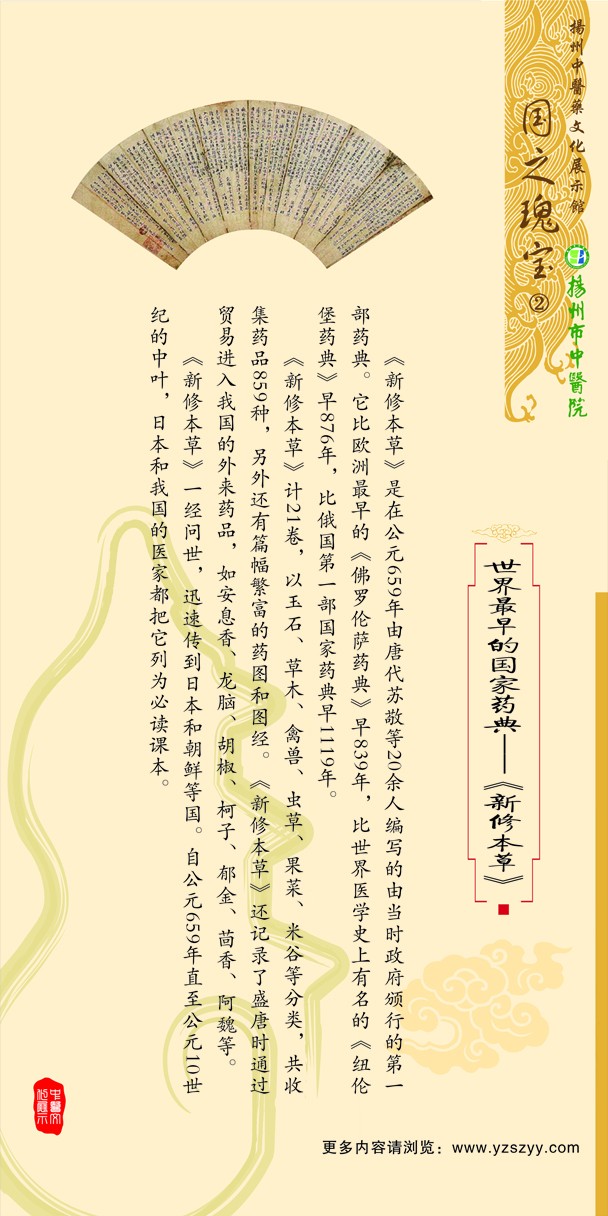 揚州中醫藥文化展示館
国之瑰宝②
揚州市中醫院
世界最早的国家药典——《新修本草》
《新修本草》是在公元659年由唐代苏敬等20余人编写的由当时政府颁行的第一
部药典。它比欧洲最早的《佛罗伦萨药典》早839年，比世界医学史上有名的《纽伦
堡药典》早876年，比俄国第一部国家药典早1119年。
《新修本草》计21卷，以玉石、草木、禽兽、虫草、果菜、米谷等分类，共收
集药品859种，另外还有篇幅繁富的药图和图经。《新修本草》还记录了盛唐时通过
贸易进入我国的外来药品，如安息香、龙脑、胡椒、柯子、郁金、茴香、阿魏等。
《新修本草》一经问世，迅速传到日本和朝鲜等国。自公元659年直至公元10世
纪的中叶，日本和我国的医家都把它列为必读课本。
更多内容请浏览：www.yzszyy.com